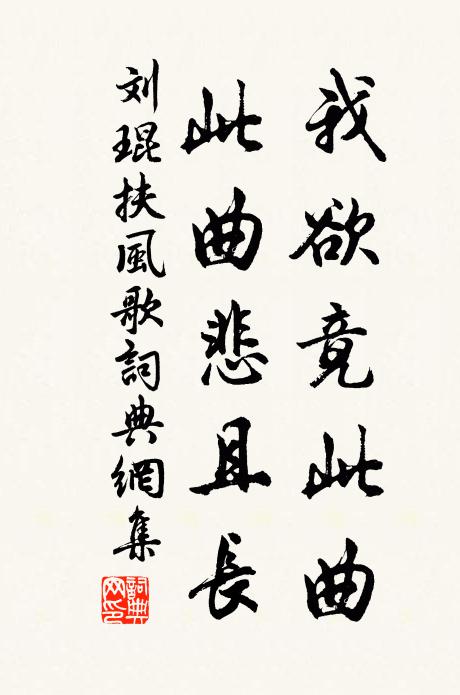 我欲竟此曲
此曲悲且長
刘琨扶風歌詞典網集
詞典网印